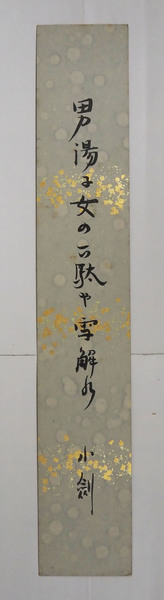 男湯に女の下駄や雪解水 小劍